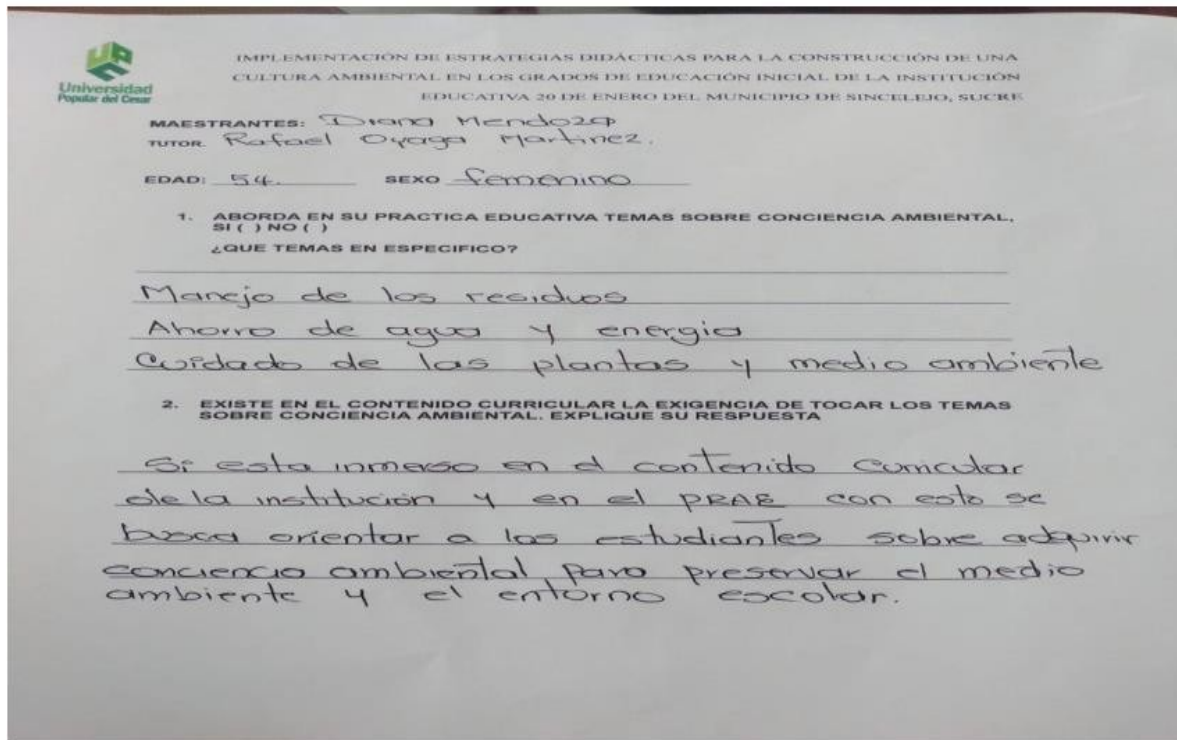 UPC
Universidad
Popular del Cesar
IMPLEMENTACIÓN DE ESTRATEGIAS DIDÁCTICAS PARA LA CONSTRUCCIÓN DE UNA
CULTURA AMBIENTAL EN LOS GRADOS DE EDUCACIÓN INICIAL DE LA INSTITUCIÓN
EDUCATIVA 20 DE ENERO DEL MUNICIPIO DE SINCELEJO, SUCRE
MAESTRANTES: Diana Mendoza
TUTOR. Rafael Oyaga Martinez.
EDAD: 54. SEXO femenino
1. ABORDA EN SU PRACTICA EDUCATIVA TEMAS SOBRE CONCIENCIA AMBIENTAL,
SI ( ) NO ( )
¿QUE TEMAS EN ESPECIFICO?
Manejo de los residuos
Ahorro de agua y energia
Cuidado de las plantas y medio ambiente
2. EXISTE EN EL CONTENIDO CURRICULAR LA EXIGENCIA DE TOCAR LOS TEMAS
SOBRE CONCIENCIA AMBIENTAL. EXPLIQUE SU RESPUESTA
Si esta inmerso en el contenido curricular
de la institución y en el PRAE con esto se
busca orientar a los estudiantes sobre adquirir
conciencia ambiental para preservar el medio
ambiente y el entorno escolar.